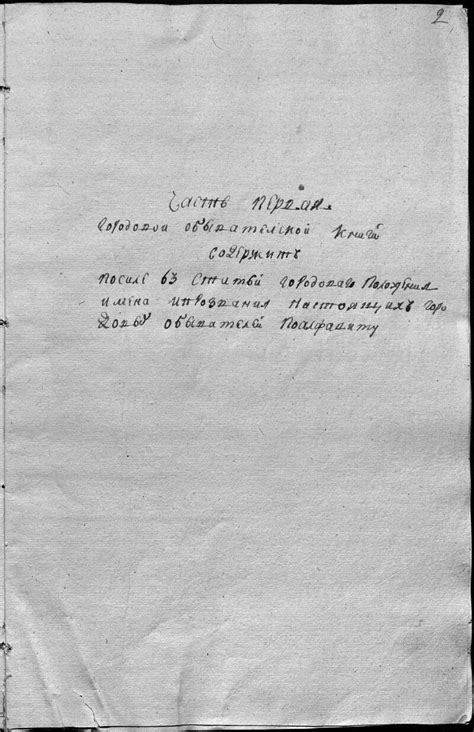 2
Часть Первая
городовои обывателской книги
содержитъ
посиле 63 статьи городоваго Положения
имена ипрозвания настоящихъ горо
довы обывателей поалфавиту